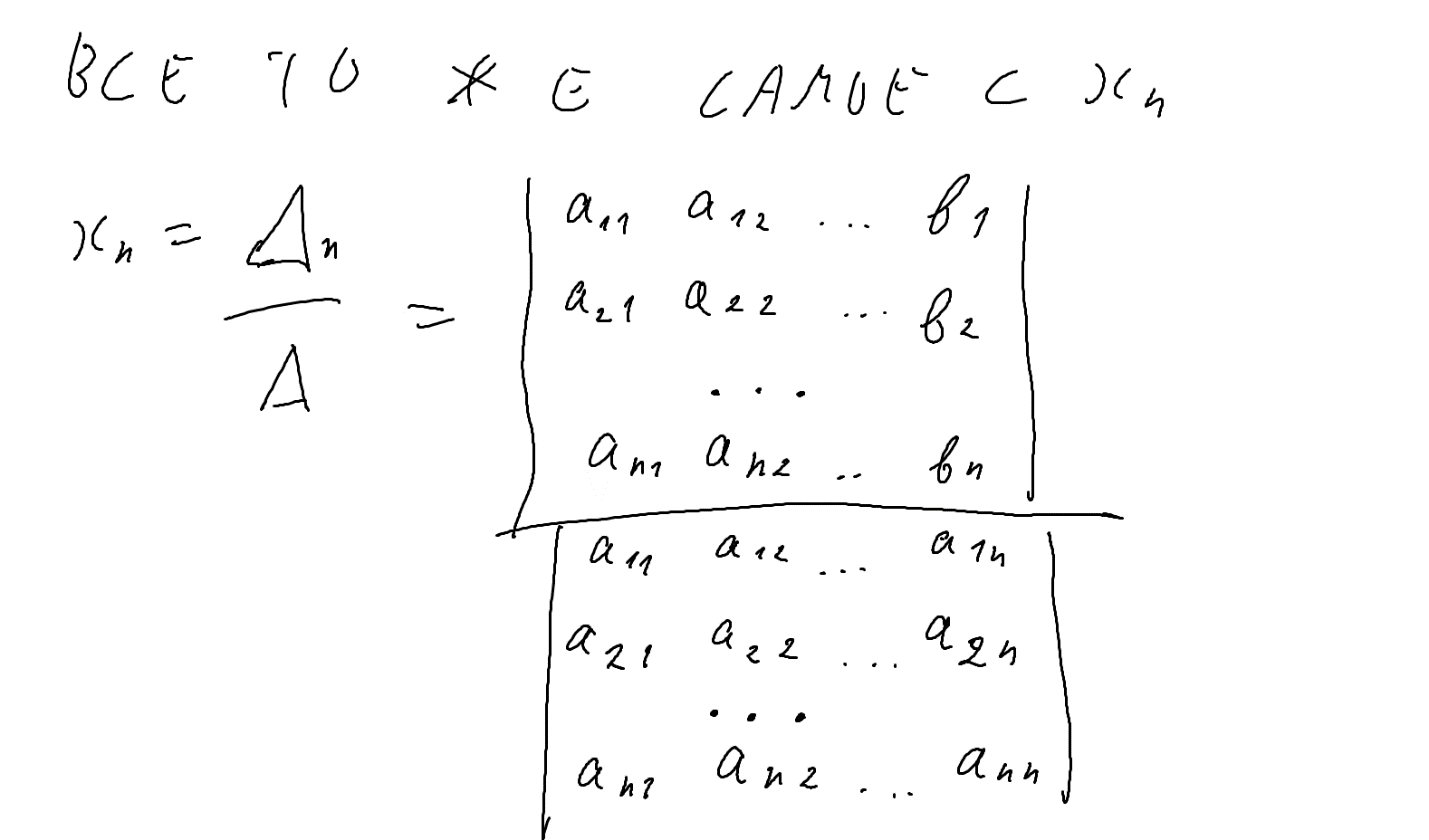 ВСЕ ТО ЖЕ САМОЕ С xₙ
xₙ = Δₙ / Δ =
a₁₁ a₁₂ ... b₁
a₂₁ a₂₂ ... b₂
...
aₙ₁ aₙ₂ .. bₙ
a₁₁ a₁₂ ... a₁ₙ
a₂₁ a₂₂ ... a₂ₙ
...
aₙ₁ aₙ₂ ... aₙₙ